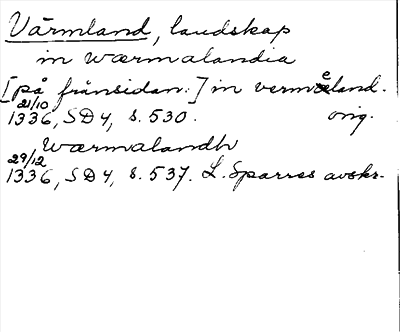 Värmland, landskap
in wærmalandia
[på frånsidan:] in vermeland.
21/10 1336, SD 4, s. 530. orig.
wærmalandh
29/12 1336, SD 4, s. 537. L. Sparres avskr.